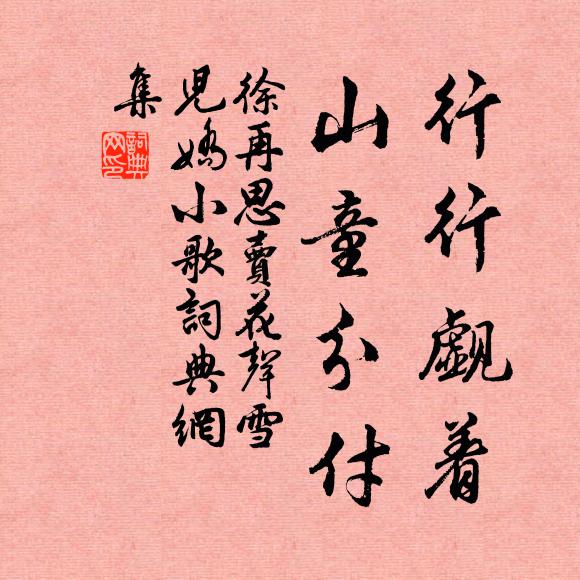 行行覷着
山童分付
徐再思賣花聲雪
兒嬌小歌詞典網
集
詞典網印